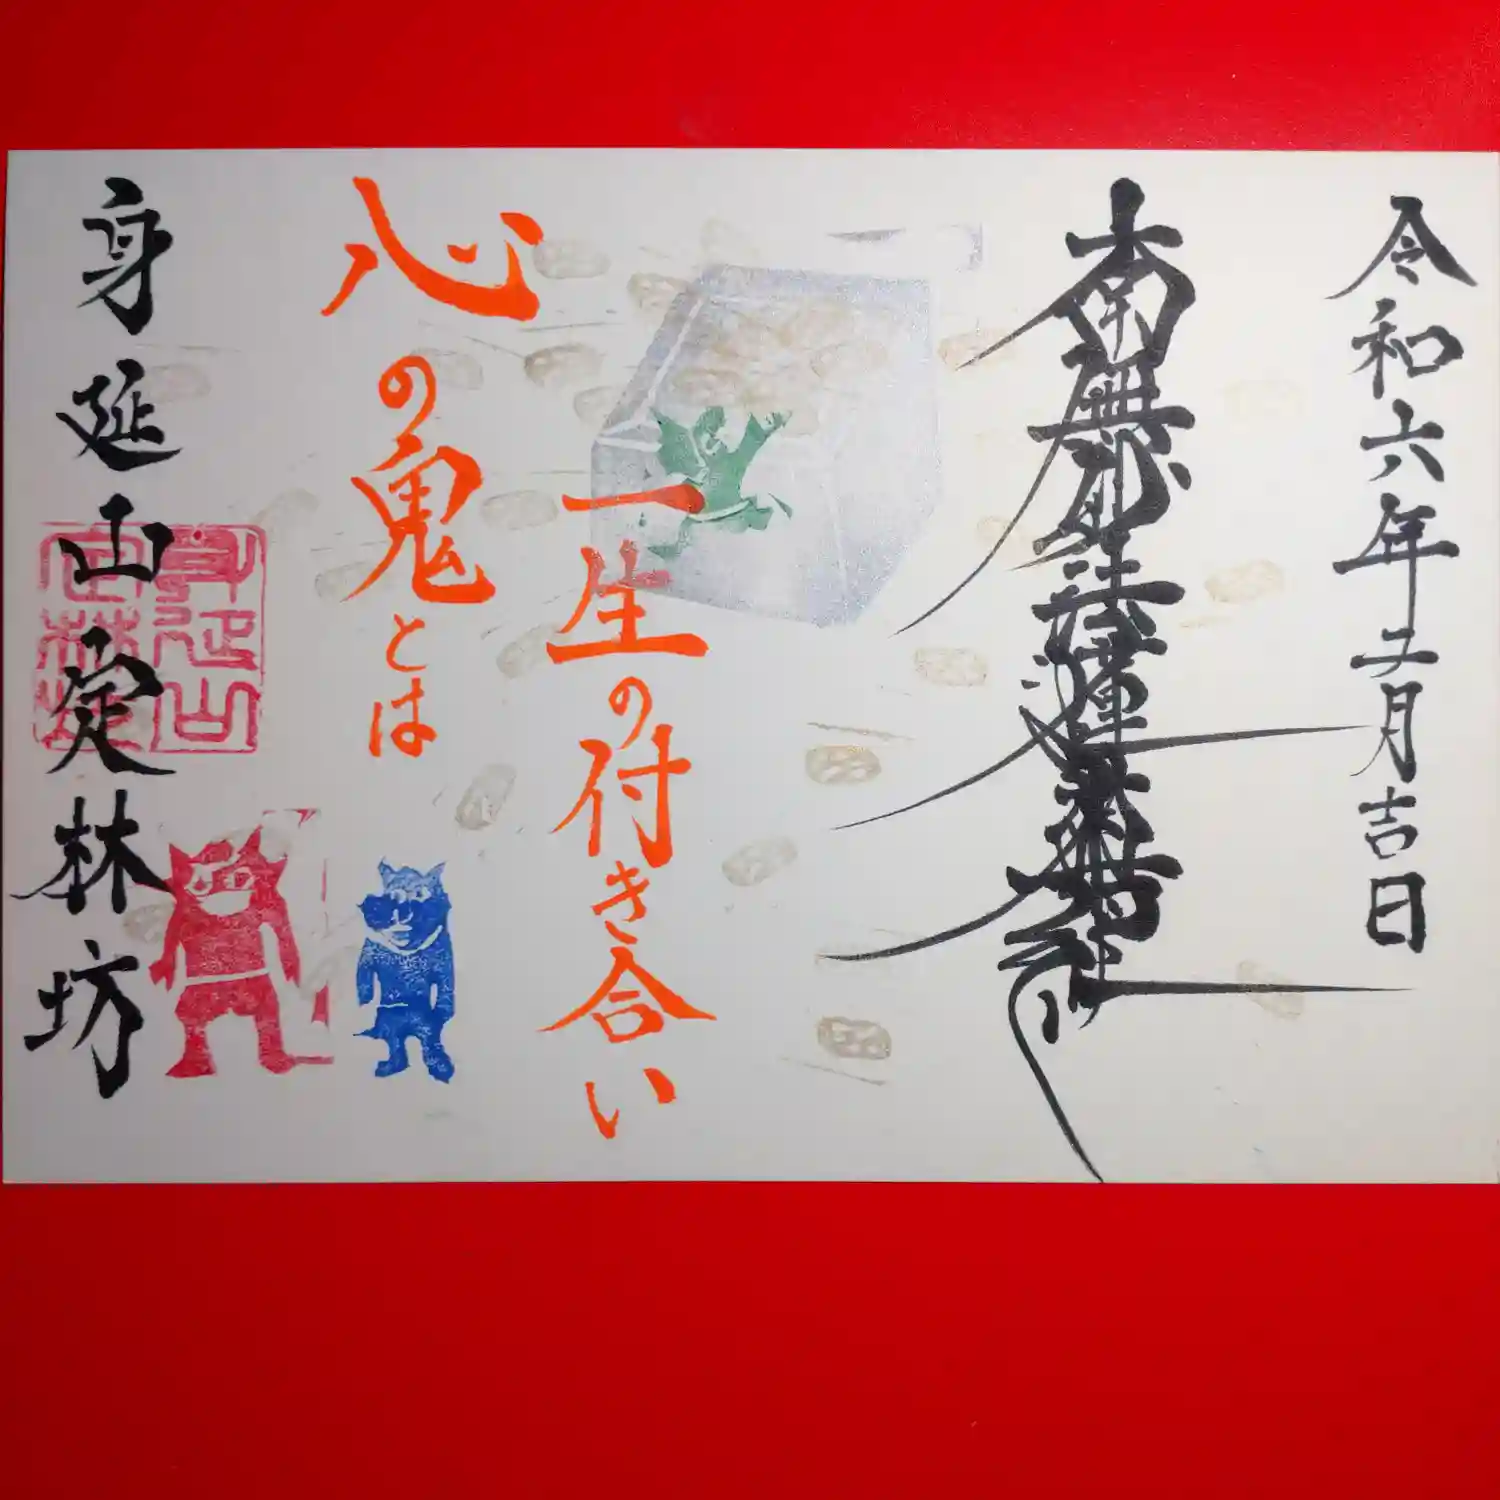 令和六年二月吉日
南無妙法蓮華経
心の鬼とは
一生の付き合い
身延山定林坊
身延山
定林坊